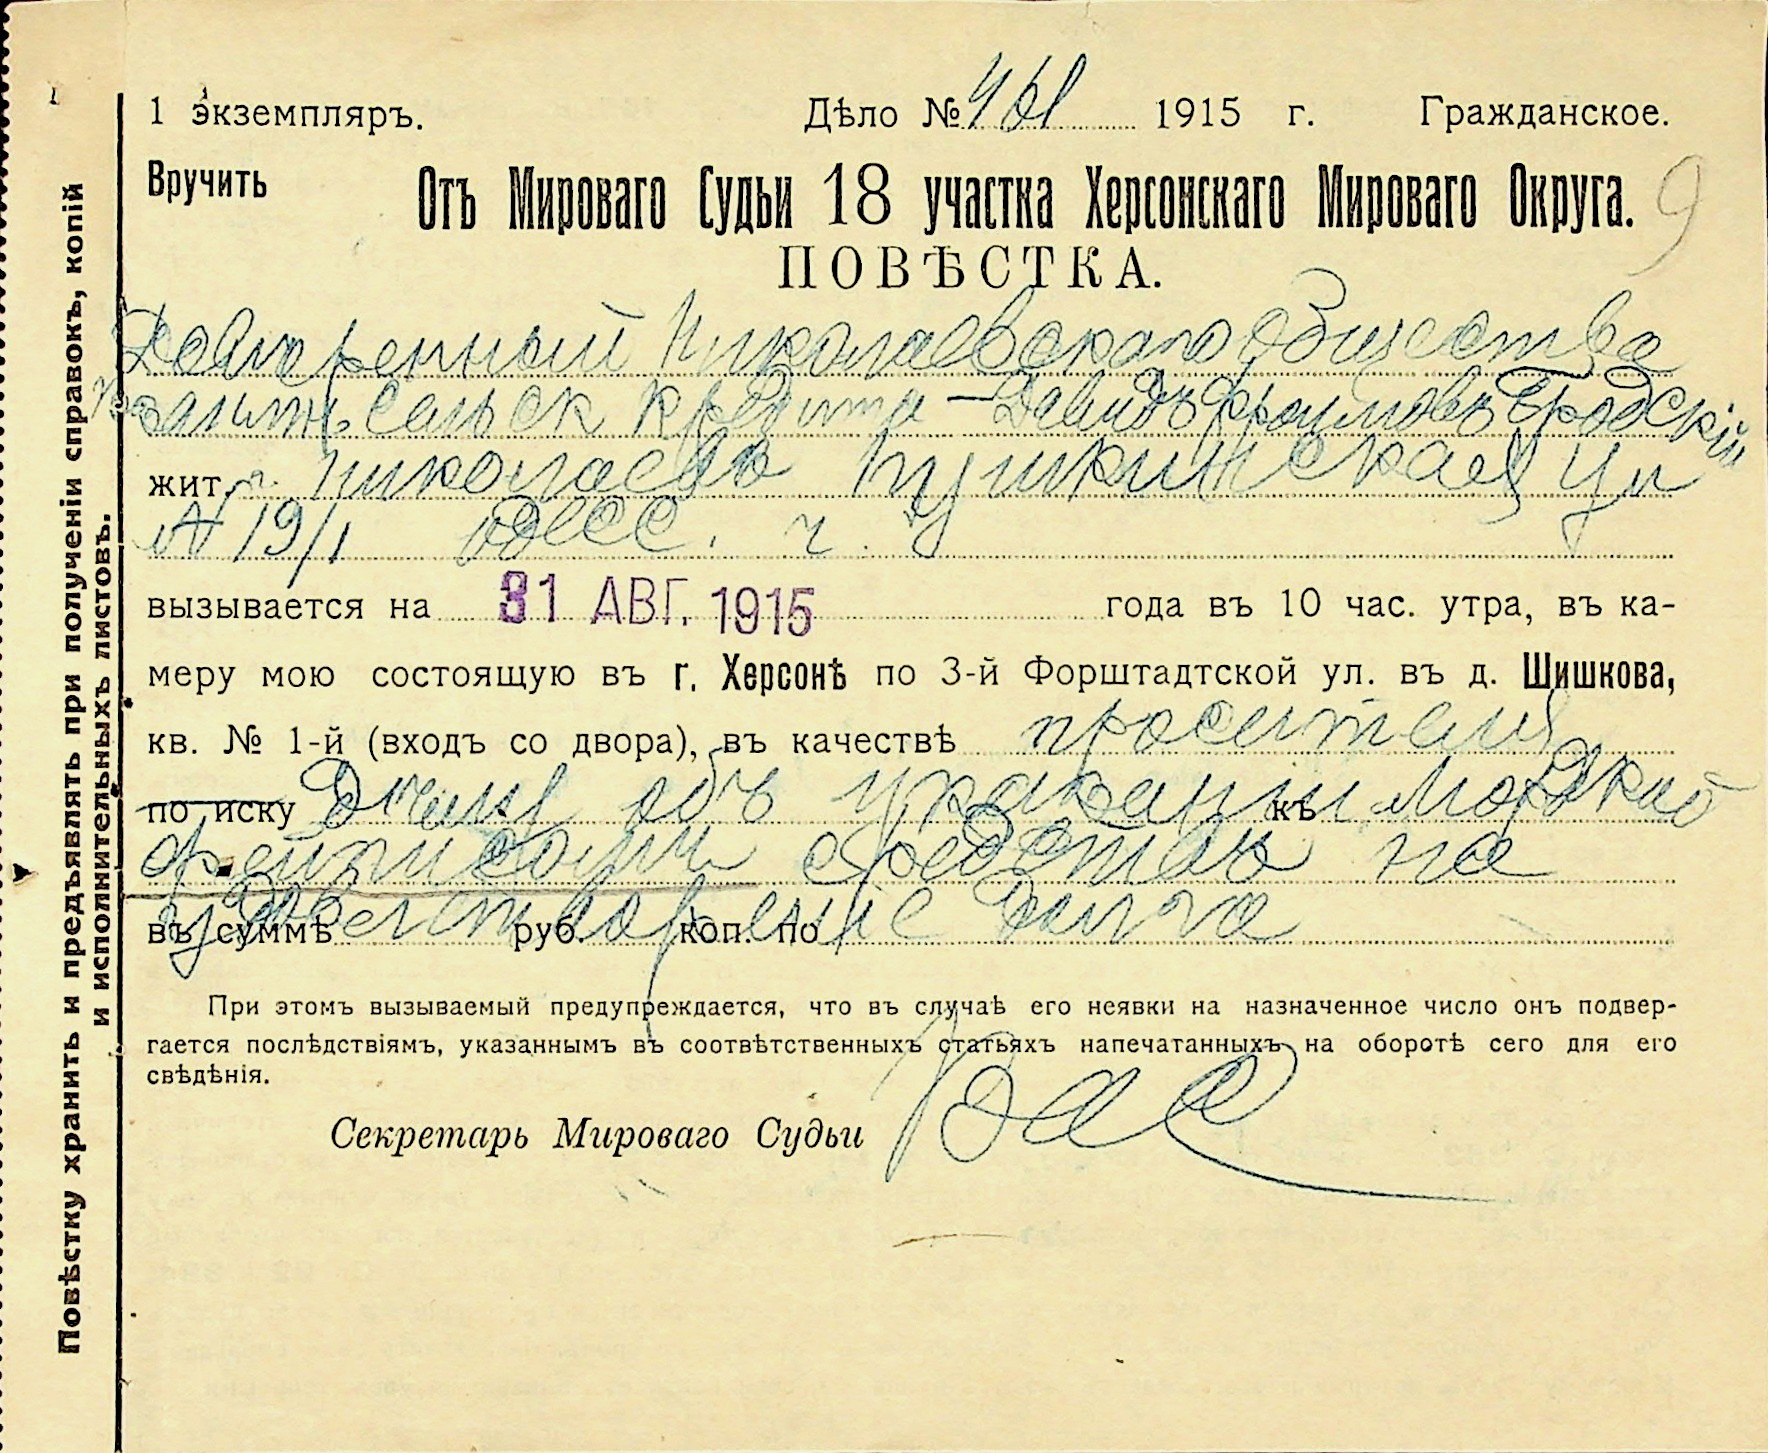 1 экземпляръ. Дѣло № 461 1915 г. Гражданское.
Вручить
Отъ Мироваго Судьи 18 участка Херсонскаго Мироваго Округа. 9
ПОВѢСТКА.
Довѣренный Николаевскаго Общества
Сельск Кредита – Давидъ Фроимовъ Бродскій
жит. г. Николаевъ Пушкинская ул
№ 19/1 Одесс. ч.
вызывается на 31 АВГ. 1915 года въ 10 час. утра, въ ка-
меру мою состоящую въ г. Херсонѣ по 3-й Форштадтской ул. въ д. Шишкова,
кв. № 1-й (входъ со двора), въ качествѣ просителя
по иску объ указаніи къ
средствъ на
въ суммѣ руб. коп. по
удовлетвореніе долга
При этомъ вызываемый предупреждается, что въ случаѣ его неявки на назначенное число онъ подвер-
гается послѣдствіямъ, указаннымъ въ соотвѣтственныхъ статьяхъ напечатанныхъ на оборотѣ сего для его
свѣдѣнія.
Секретарь Мироваго Судьи
Повѣстку хранить и предъявлять при полученіи справокъ, копій
и исполнительныхъ листовъ.